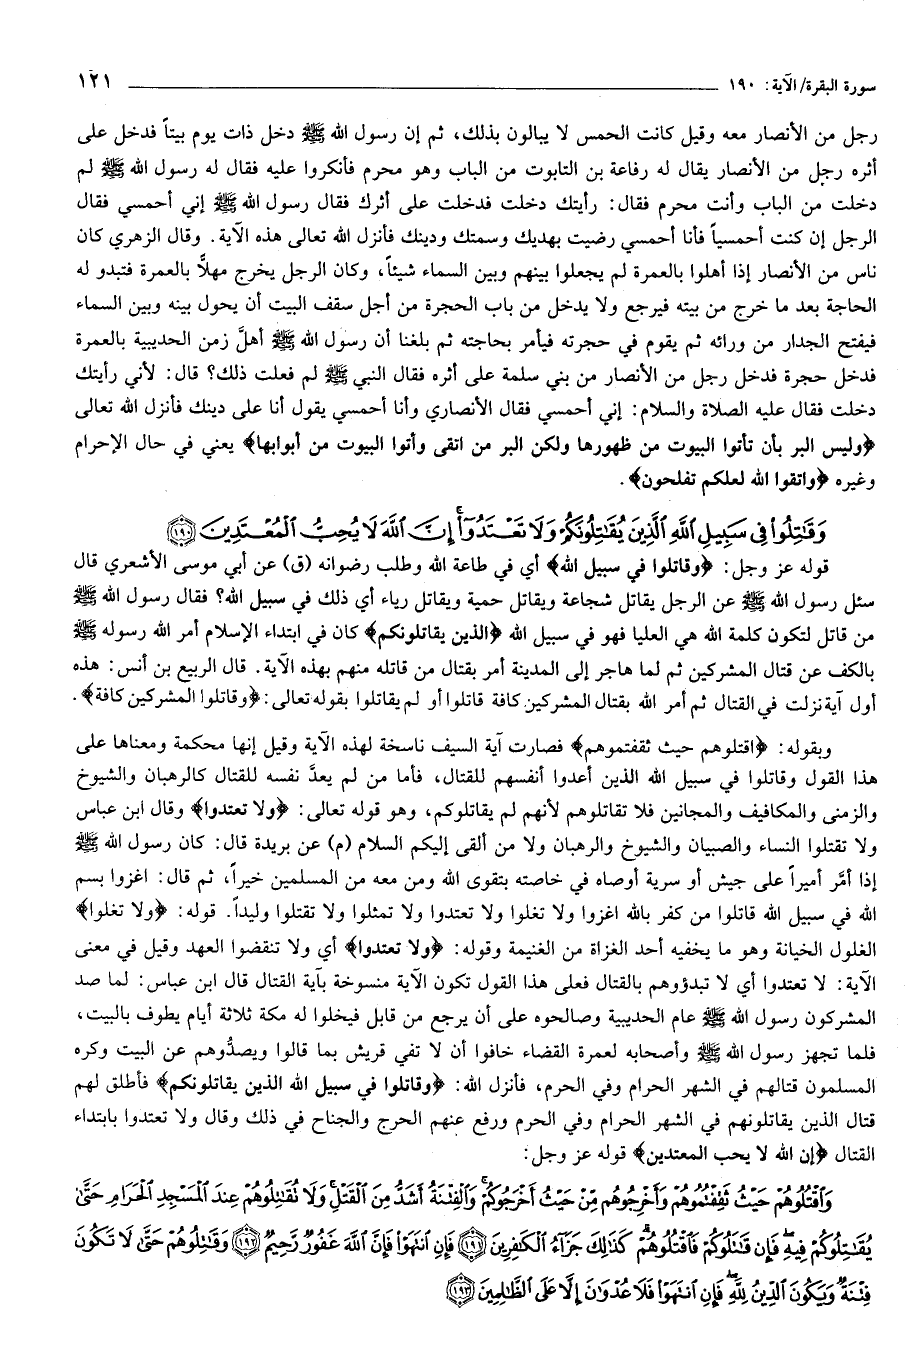 سورة البقرة/ الآية: ١٩٠ ١٢١
رجل من الأنصار معه وقيل كانت الحمس لا يبالون بذلك، ثم إن رسول الله ﷺ دخل ذات يوم بيتاً فدخل على
أثره رجل من الأنصار يقال له رفاعة بن التابوت من الباب وهو محرم فأنكروا عليه فقال له رسول الله ﷺ لم
دخلت من الباب وأنت محرم فقال: رأيتك دخلت فدخلت على أثرك فقال رسول الله ﷺ إني أحمسي فقال
الرجل إن كنت أحمسياً فأنا أحمسي رضيت بهديك وسمتك ودينك فأنزل الله تعالى هذه الآية. وقال الزهري كان
ناس من الأنصار إذا أهلوا بالعمرة لم يجعلوا بينهم وبين السماء شيئاً، وكان الرجل يخرج مهلاً بالعمرة فتبدو له
الحاجة بعد ما خرج من بيته فيرجع ولا يدخل من باب الحجرة من أجل سقف البيت أن يحول بينه وبين السماء
فيفتح الجدار من ورائه ثم يقوم في حجرته فيأمر بحاجته ثم بلغنا أن رسول الله ﷺ أهلَّ زمن الحديبية بالعمرة
فدخل حجرة فدخل رجل من الأنصار من بني سلمة على أثره فقال النبي ﷺ لم فعلت ذلك؟ قال: لأني رأيتك
دخلت فقال عليه الصلاة والسلام: إني أحمسي فقال الأنصاري وأنا أحمسي يقول أنا على دينك فأنزل الله تعالى
﴿وليس البر بأن تأتوا البيوت من ظهورها ولكن البر من اتقى وأتوا البيوت من أبوابها﴾ يعني في حال الإحرام
وغيره ﴿واتقوا الله لعلكم تفلحون﴾.
وَقَٰتِلُوا۟ فِى سَبِيلِ ٱللَّهِ ٱلَّذِينَ يُقَٰتِلُونَكُمْ وَلَا تَعْتَدُوٓا۟ ۚ إِنَّ ٱللَّهَ لَا يُحِبُّ ٱلْمُعْتَدِينَ ١٩٠
قوله عز وجل: ﴿وقاتلوا في سبيل الله﴾ أي في طاعة الله وطلب رضوانه (ق) عن أبي موسى الأشعري قال
سئل رسول الله ﷺ عن الرجل يقاتل شجاعة ويقاتل حمية ويقاتل رياء أي ذلك في سبيل الله؟ فقال رسول الله ﷺ
من قاتل لتكون كلمة الله هي العليا فهو في سبيل الله ﴿الذين يقاتلونكم﴾ كان في ابتداء الإسلام أمر الله رسوله ﷺ
بالكف عن قتال المشركين ثم لما هاجر إلى المدينة أمر بقتال من قاتله منهم بهذه الآية. قال الربيع بن أنس: هذه
أول آية نزلت في القتال ثم أمر الله بقتال المشركين كافة قاتلوا أو لم يقاتلوا بقوله تعالى: ﴿وقاتلوا المشركين كافة﴾.
وبقوله: ﴿اقتلوهم حيث ثقفتموهم﴾ فصارت آية السيف ناسخة لهذه الآية وقيل إنها محكمة ومعناها على
هذا القول وقاتلوا في سبيل الله الذين أعدوا أنفسهم للقتال، فأما من لم يعدَّ نفسه للقتال كالرهبان والشيوخ
والزمنى والمكافيف والمجانين فلا تقاتلوهم لأنهم لم يقاتلوكم، وهو قوله تعالى: ﴿ولا تعتدوا﴾ وقال ابن عباس
ولا تقتلوا النساء والصبيان والشيوخ والرهبان ولا من ألقى إليكم السلام (م) عن بريدة قال: كان رسول الله ﷺ
إذا أمَّر أميراً على جيش أو سرية أوصاه في خاصته بتقوى الله ومن معه من المسلمين خيراً، ثم قال: اغزوا بسم
الله في سبيل الله قاتلوا من كفر بالله اغزوا ولا تغلوا ولا تعتدوا ولا تمثلوا ولا تقتلوا وليداً. قوله: ﴿ولا تغلوا﴾
الغلول الخيانة وهو ما يخفيه أحد الغزاة من الغنيمة وقوله: ﴿ولا تعتدوا﴾ أي ولا تنقضوا العهد وقيل في معنى
الآية: لا تعتدوا أي لا تبدؤوهم بالقتال فعلى هذا القول تكون الآية منسوخة بآية القتال قال ابن عباس: لما صد
المشركون رسول الله ﷺ عام الحديبية وصالحوه على أن يرجع من قابل فيخلوا له مكة ثلاثة أيام يطوف بالبيت،
فلما تجهز رسول الله ﷺ وأصحابه لعمرة القضاء خافوا أن لا تفي قريش بما قالوا ويصدُّوهم عن البيت وكره
المسلمون قتالهم في الشهر الحرام وفي الحرم، فأنزل الله: ﴿وقاتلوا في سبيل الله الذين يقاتلونكم﴾ فأطلق لهم
قتال الذين يقاتلونهم في الشهر الحرام وفي الحرم ورفع عنهم الحرج والجناح في ذلك وقال ولا تعتدوا بابتداء
القتال ﴿إن الله لا يحب المعتدين﴾ قوله عز وجل:
وَٱقْتُلُوهُمْ حَيْثُ ثَقِفْتُمُوهُمْ وَأَخْرِجُوهُم مِّنْ حَيْثُ أَخْرَجُوكُمْ ۚ وَٱلْفِتْنَةُ أَشَدُّ مِنَ ٱلْقَتْلِ ۚ وَلَا تُقَٰتِلُوهُمْ عِندَ ٱلْمَسْجِدِ ٱلْحَرَامِ حَتَّىٰ
يُقَٰتِلُوكُمْ فِيهِ ۖ فَإِن قَٰتَلُوكُمْ فَٱقْتُلُوهُمْ ۗ كَذَٰلِكَ جَزَآءُ ٱلْكَٰفِرِينَ ١٩١ فَإِنِ ٱنتَهَوْا۟ فَإِنَّ ٱللَّهَ غَفُورٌ رَّحِيمٌ ١٩٢ وَقَٰتِلُوهُمْ حَتَّىٰ لَا تَكُونَ
فِتْنَةٌ وَيَكُونَ ٱلدِّينُ لِلَّهِ ۖ فَإِنِ ٱنتَهَوْا۟ فَلَا عُدْوَٰنَ إِلَّا عَلَى ٱلظَّٰلِمِينَ ١٩٣